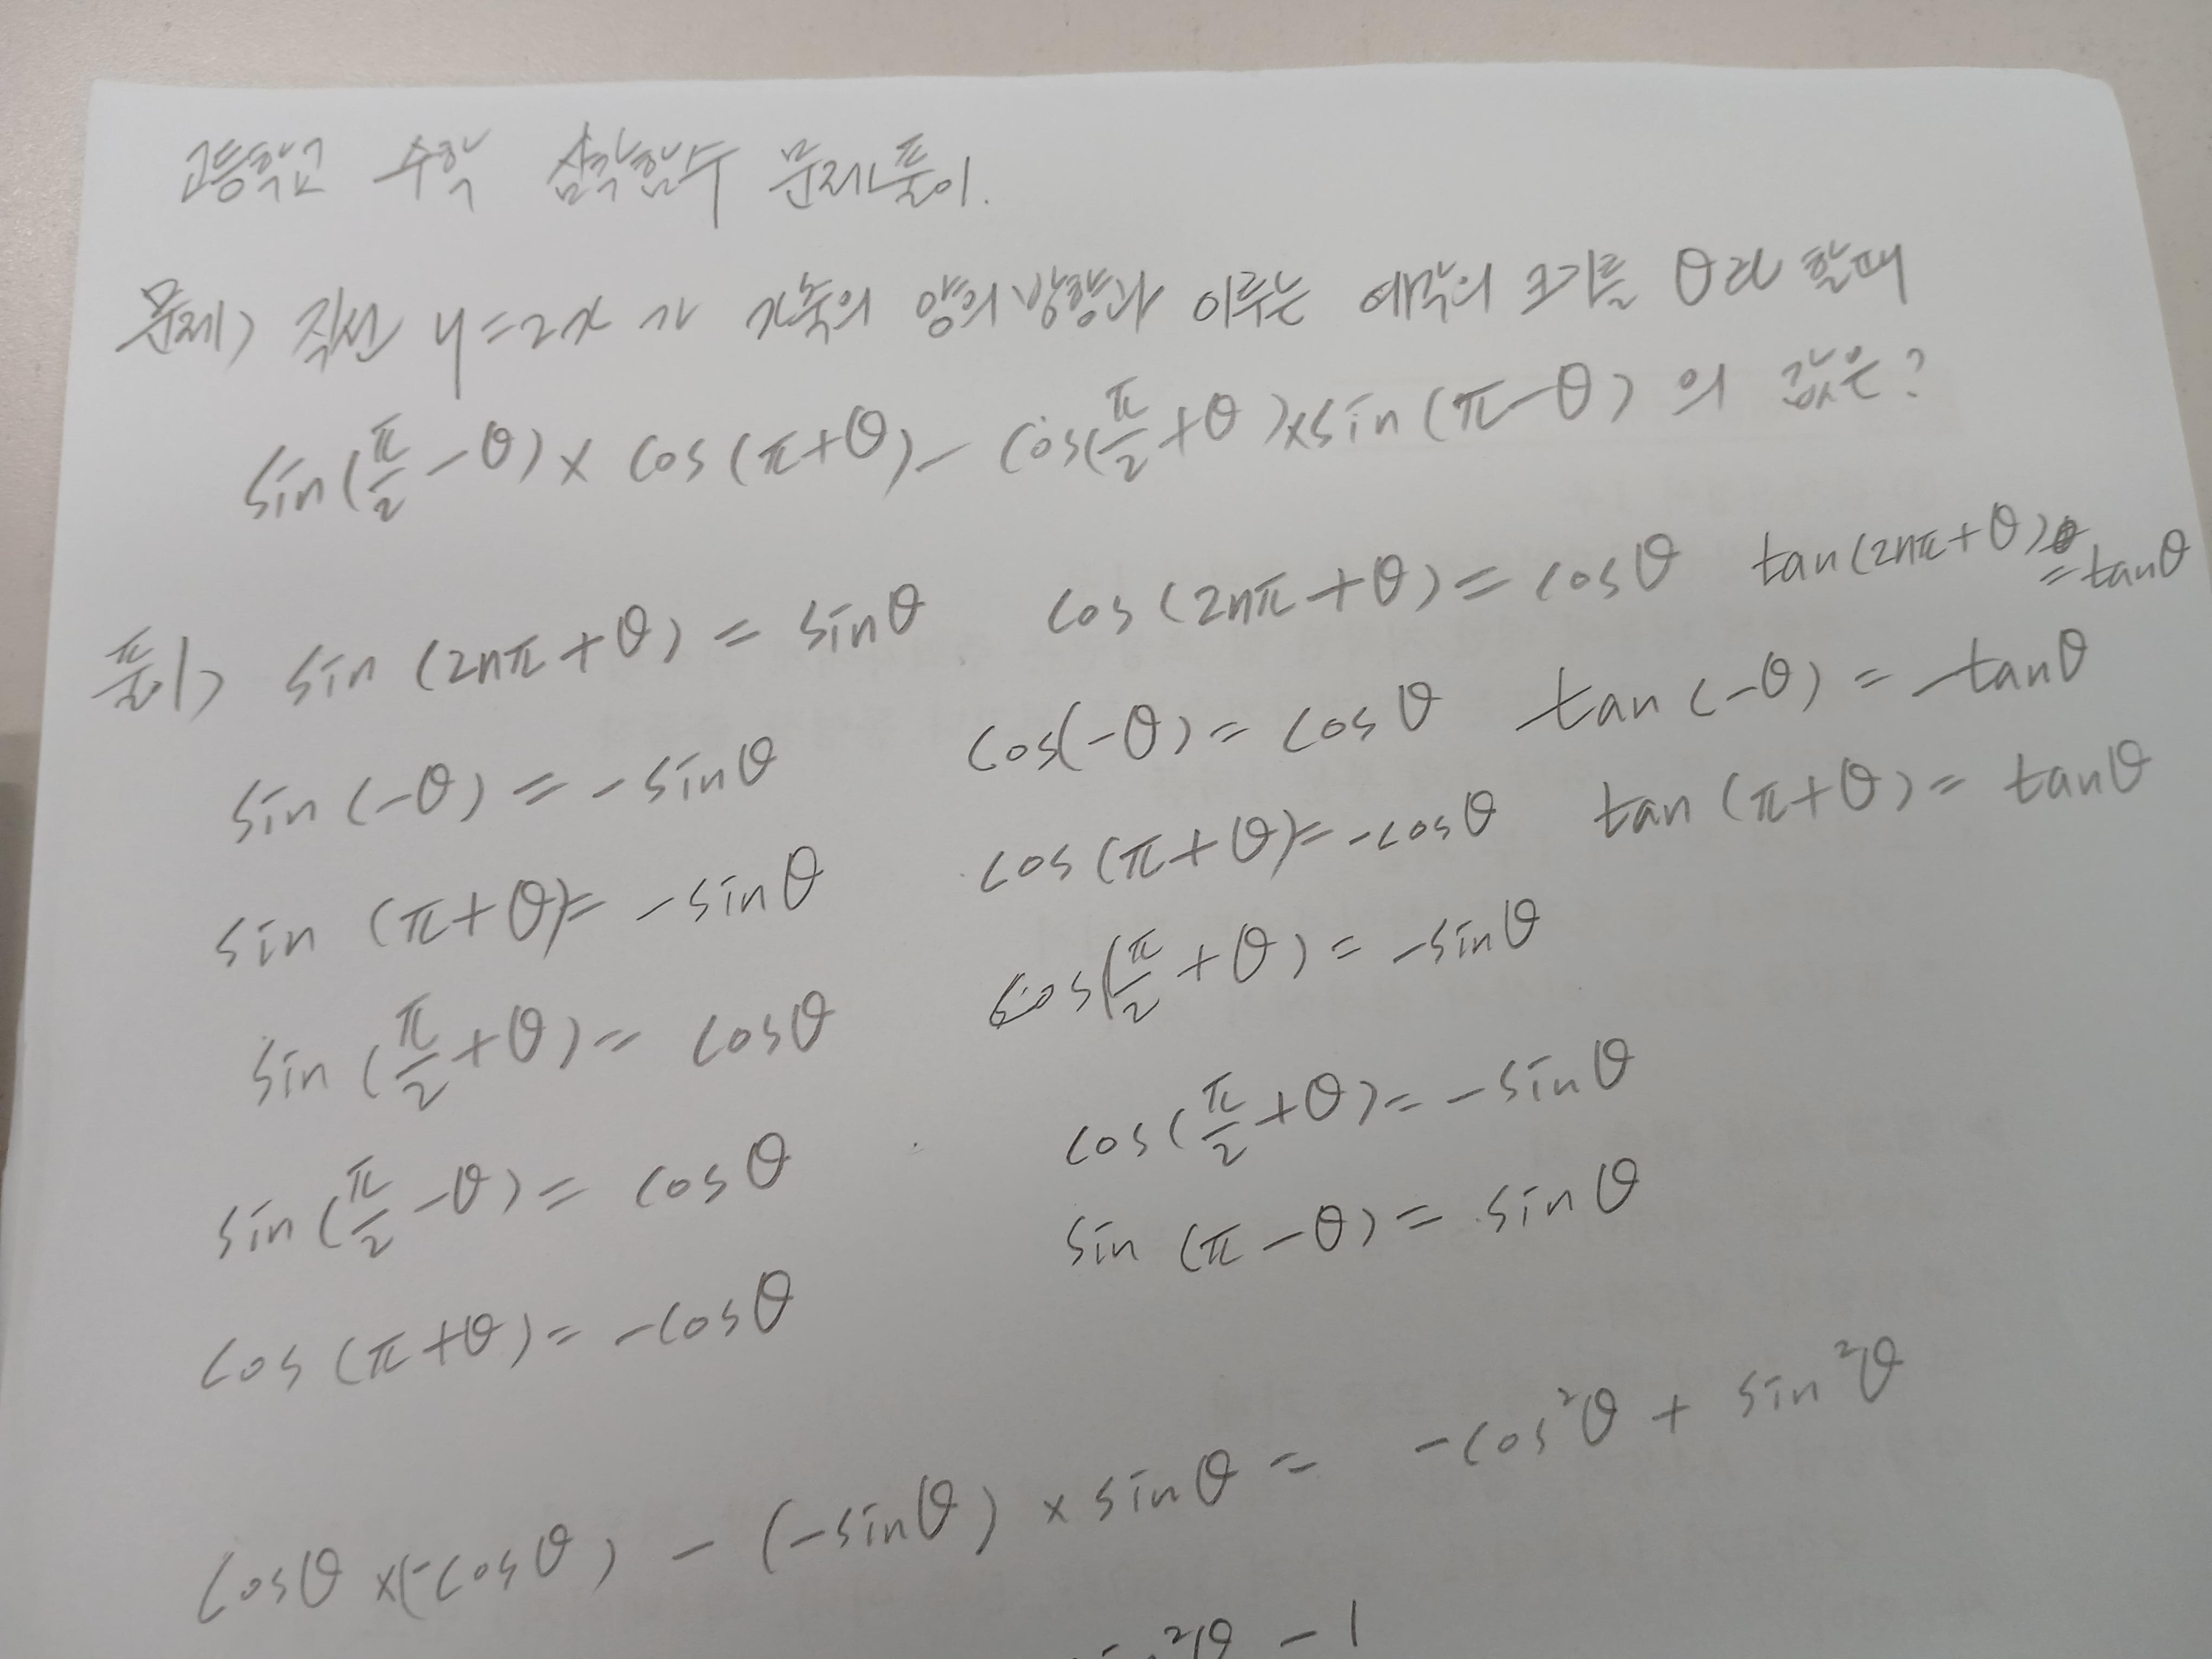 고등학교 수학 삼각함수 문제풀이.
문제) 직선 y=2x 가 x축의 양의 방향과 이루는 예각의 크기를 θ라 할때
sin(π/2-θ)× cos(π+θ)- cos(π/2+θ)×sin(π-θ) 의 값은?
풀이) sin (2nπ+θ) = sinθ cos (2nπ+θ) = cosθ tan(2nπ+θ)
=tanθ
sin (-θ) = -sinθ cos(-θ) = cosθ tan (-θ) = -tanθ
sin (π+θ)= -sinθ cos (π+θ)= -cosθ tan (π+θ) = tanθ
sin (π/2+θ) = cosθ cos(π/2+θ) = -sinθ
sin (π/2-θ) = cosθ cos(π/2+θ)= -sinθ
cos (π+θ) = -cosθ sin (π-θ) = sinθ
cosθ ×(-cosθ) - (-sinθ) × sinθ = -cos²θ + sin²θ
²θ - 1